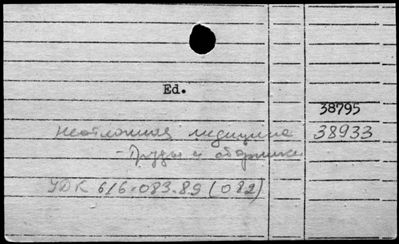 Ed.
38795
Неотложная медицина 38933
- Труды и сборники
УДК 616-083.89 (082)